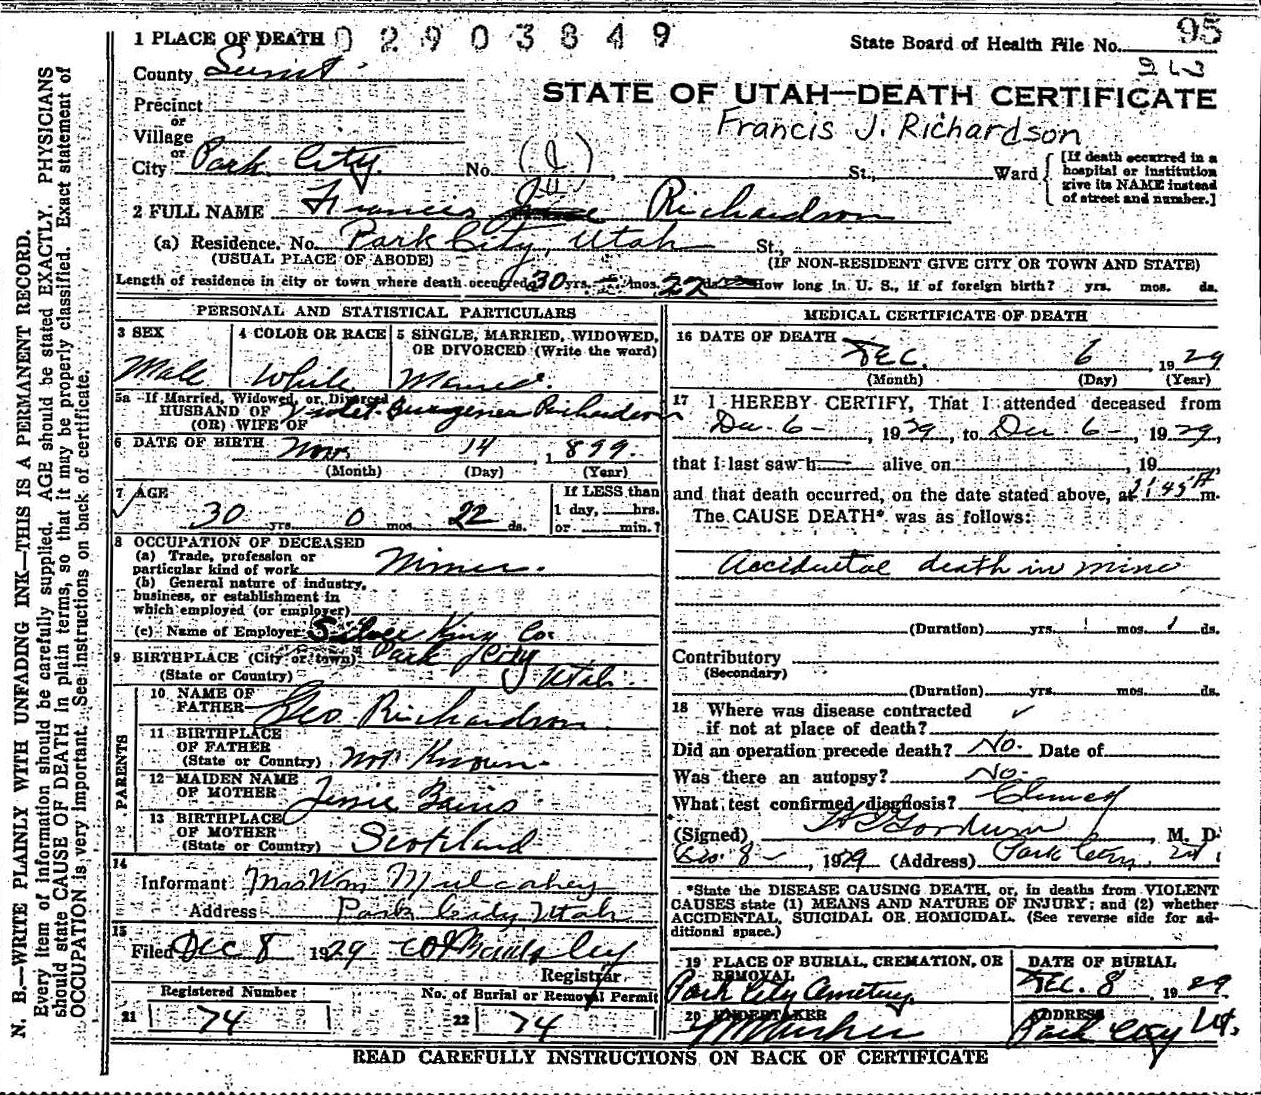 N. B.—WRITE PLAINLY WITH UNFADING INK—THIS IS A PERMANENT RECORD.
Every item of information should be carefully supplied. AGE should be stated EXACTLY. PHYSICIANS
should state CAUSE OF DEATH in plain terms, so that it may be properly classified. Exact statement of
OCCUPATION is very important. See instructions on back of certificate.
1 PLACE OF DEATH 02903849
State Board of Health File No. 95
County Summit
STATE OF UTAH—DEATH CERTIFICATE
Precinct
or
Village
Francis J. Richardson
or
City Park City. No. St., Ward
[If death occurred in a
hospital or institution
give its NAME instead
of street and number.]
2 FULL NAME Francis J. Richardson
(a) Residence. No. Park City, Utah St.,
(USUAL PLACE OF ABODE) (IF NON-RESIDENT GIVE CITY OR TOWN AND STATE)
Length of residence in city or town where death occurred 30 yrs. mos. 22 ds. How long in U. S., if of foreign birth? yrs. mos. ds.
PERSONAL AND STATISTICAL PARTICULARS
3 SEX 4 COLOR OR RACE 5 SINGLE, MARRIED, WIDOWED,
OR DIVORCED (Write the word)
Male White Married.
5a If Married, Widowed, or Divorced
HUSBAND OF Violet Richardson
(OR) WIFE OF
6 DATE OF BIRTH Nov. 14 1899.
(Month) (Day) (Year)
7 AGE If LESS than
1 day, hrs.
30 yrs. 0 mos. 22 ds. or min.?
8 OCCUPATION OF DECEASED
(a) Trade, profession or
particular kind of work Miner.
(b) General nature of industry,
business, or establishment in
which employed (or employer)
(c) Name of Employer Silver King Co.
9 BIRTHPLACE (City or town) Park City
(State or Country) Utah.
PARENTS
10 NAME OF
FATHER Geo Richardson
11 BIRTHPLACE
OF FATHER
(State or Country) Not Known.
12 MAIDEN NAME
OF MOTHER Jessie
13 BIRTHPLACE
OF MOTHER
(State or Country) Scotland
14
Informant Mrs Wm Mulcahey
Address Park City Utah
15
Filed Dec 8 1929
Registrar
Registered Number No. of Burial or Removal Permit
21 74 22 74
MEDICAL CERTIFICATE OF DEATH
16 DATE OF DEATH
DEC. 6 1929
(Month) (Day) (Year)
17 I HEREBY CERTIFY, That I attended deceased from
Dec. 6 , 1929, to Dec 6 , 1929,
that I last saw h alive on , 19
and that death occurred, on the date stated above, at 1:45 A m.
The CAUSE DEATH* was as follows:
Accidental death in mine
(Duration) yrs. mos. ds.
Contributory
(Secondary)
(Duration) yrs. mos. ds.
18 Where was disease contracted
if not at place of death?
Did an operation precede death? No. Date of
Was there an autopsy? No.
What test confirmed diagnosis?
(Signed) M. D.
Dec. 8 , 1929 (Address) Park City,
*State the DISEASE CAUSING DEATH, or, in deaths from VIOLENT
CAUSES state (1) MEANS AND NATURE OF INJURY; and (2) whether
ACCIDENTAL, SUICIDAL OR HOMICIDAL. (See reverse side for ad-
ditional space.)
19 PLACE OF BURIAL, CREMATION, OR
REMOVAL DATE OF BURIAL
Park City Cemetery DEC. 8 1929
20 UNDERTAKER ADDRESS
Park City Ut.
READ CAREFULLY INSTRUCTIONS ON BACK OF CERTIFICATE